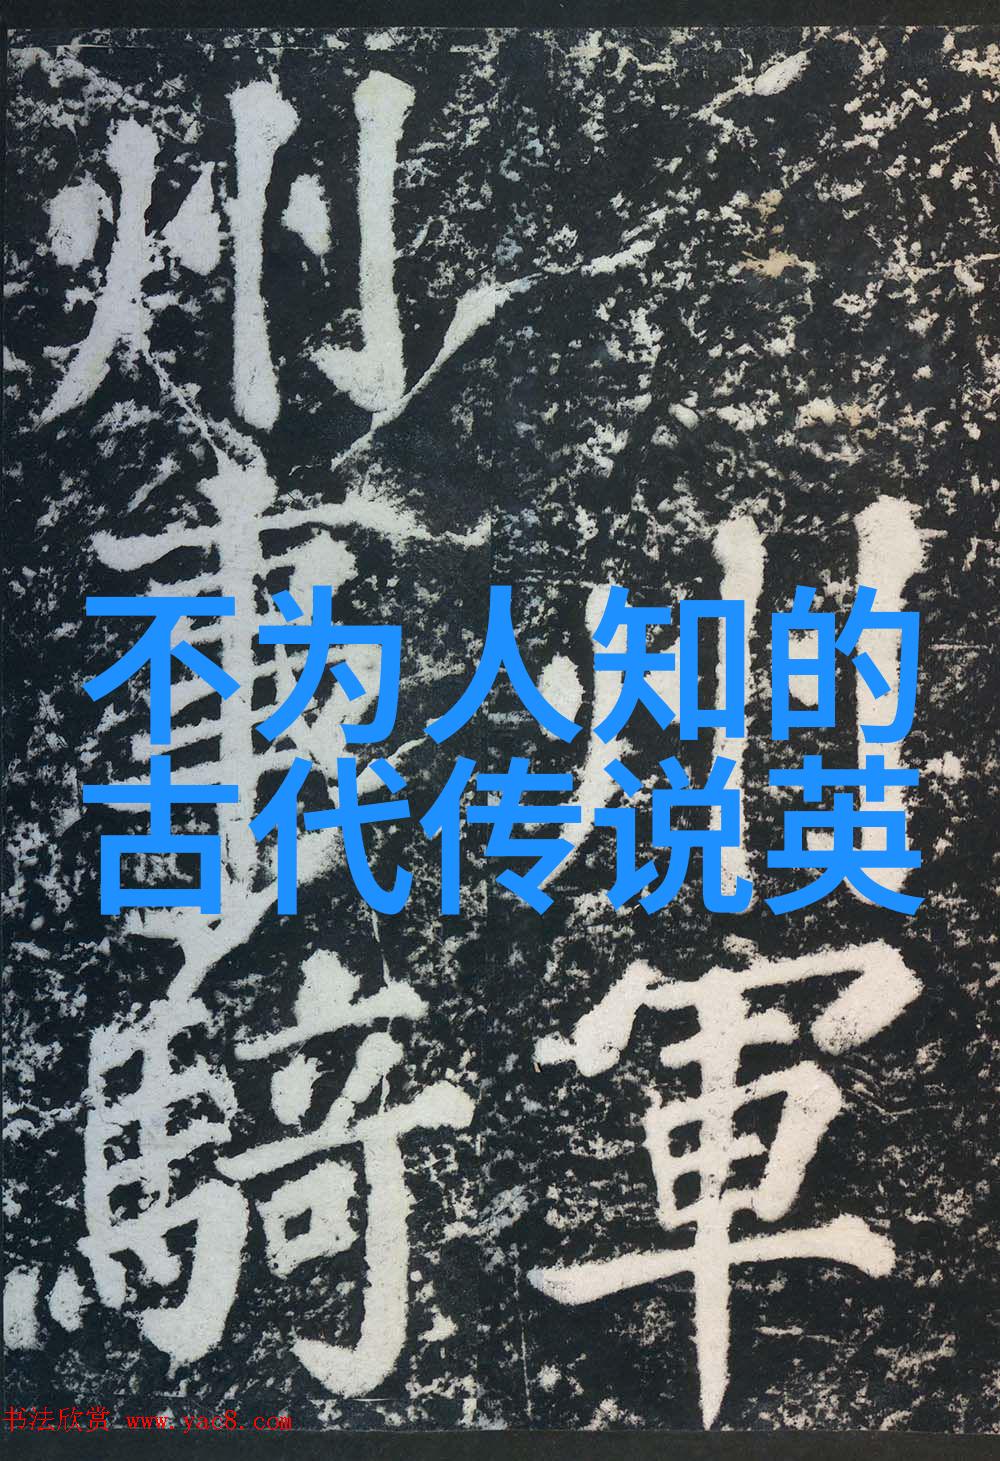 州軍
州事騎
不为人知的
古代传说英
书法欣赏 www.yac8.com